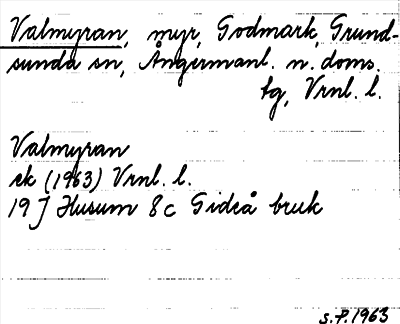 Valmyran, myr, Godmark, Grund-
sunda sn, Ångermanl. n. doms.
tg, Vrnl. l.
Valmyran
ek (1963) Vrnl. l.
19 J Husum 8c Gideå bruk
S.P. 1963